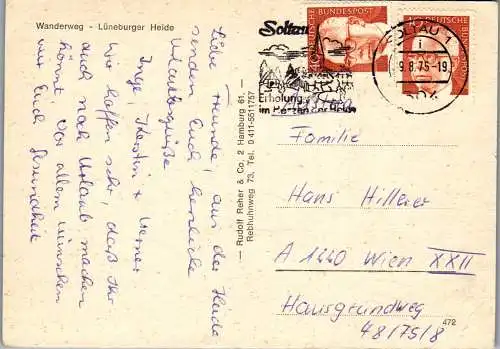 Wanderweg - Lüneburger Heide
Liebe Freunde, aus der Heide
senden Euch herzliche
Urlaubsgrüße
Inge, Kerstin + Werner
Wir hoffen sehr, daß Ihr
auch noch Urlaub machen
könnt. Vor allem wünschen
wir Euch Gesundheit
— Rudolf Reher & Co, 2 Hamburg 61, —
Rebhuhnweg 73, Tel. 0 411-5511757
Soltau
Erholung
im Herzen der Heide
DEUTSCHE BUNDESPOST
40 DEUTSCHE BUNDESPOST
SOLTAU 1
i
-9.8.75-19
Familie
Hans Hillerer
A 1220 Wien XXII
Hausgrundweg
48/75/8
472